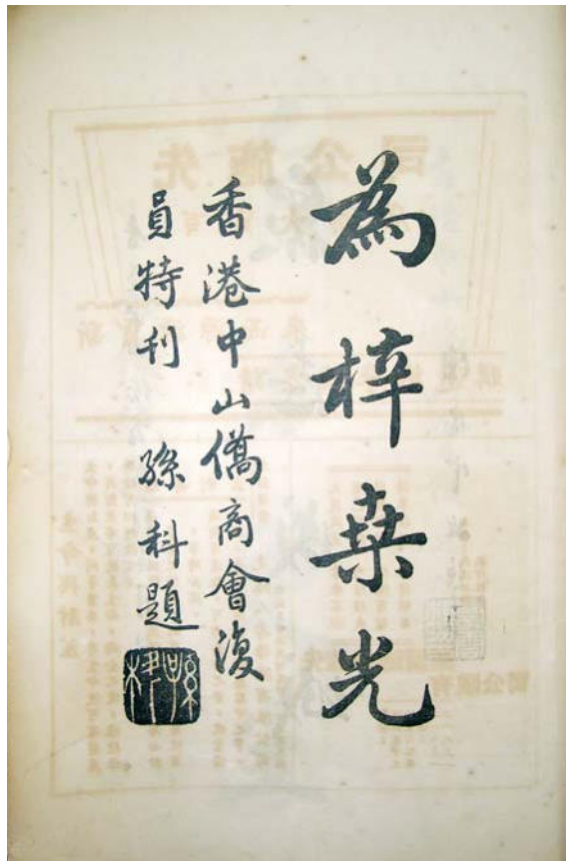 為梓桒光
香港中山僑商會復
員特刊 孫科題
孫科